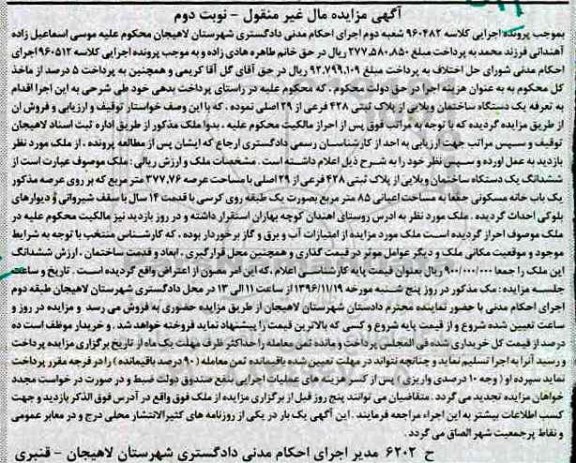 آگهی مزایده مال غیر منقول - نوبت دوم
بموجب پرونده اجرایی کلاسه ۹۶۰۴۸۲ شعبه دوم اجرای احکام مدنی دادگستری شهرستان لاهیجان محکوم علیه موسی اسماعیل زاده
آهندانی فرزند محمد به پرداخت مبلغ ۲۷۷.۵۸۰.۸۵۰ ریال در حق خانم طاهره هادی زاده و به موجب پرونده اجرایی کلاسه ۹۶۰۵۱۲ اجرای
احکام مدنی شورای حل اختلاف به پرداخت مبلغ ۹۲.۷۹۹.۱۰۹ ریال در حق آقای گل آقا کریمی و همچنین به پرداخت ۵ درصد از ماخذ
کل محکوم به به عنوان هزینه اجرا در حق دولت محکوم . که محکوم علیه در راستای پرداخت بدهی خود طی شرحی به این اجرا اقدام
به تعرفه یک دستگاه ساختمان ویلایی از پلاک ثبتی ۴۲۸ فرعی از ۲۹ اصلی نموده . که با این وصف خواستار توقیف و ارزیابی و فروش ان
از طریق مزایده گردیده که با توجه به مراتب فوق پس از احراز مالکیت محکوم علیه . بدوا ملک مذکور از طریق اداره ثبت اسناد لاهیجان
توقیف و سپس مراتب جهت ارزیابی به احد از کارشناسان رسمی دادگستری ارجاع که ایشان پس از مطالعه پرونده . از ملک مورد نظر
بازدید به عمل اورده و سپس نظر خود را به شرح ذیل اعلام داشته است . مشخصات ملک و ارزش ریالی : ملک موصوف عبارت است از
ششدانگ یک دستگاه ساختمان ویلایی از پلاک ثبتی ۴۲۸ فرعی از ۲۹ اصلی با مساحت عرصه ۳۷۷.۷۶ متر مربع که بر روی عرصه مذکور
یک باب خانه مسکونی جمعا به مساحت اعیانی ۸۵ متر مربع بصورت یک طبقه روی کرسی با قدمت ۱۴ سال با سقف شیروانی و دیوارهای
بلوکی احداث گردیده . ملک مورد نظر به ادرس روستای اهندان کوچه بهاران استقرار داشته و در روز بازدید نیز مالکیت محکوم علیه در
ملک موصوف احراز گردیده است ملک مورد مزایده از امتیازات آب و برق و گاز برخوردار بوده . که کارشناس منتخب با توجه به شرایط
موجود و موقعیت مکانی ملک و دیگر عوامل موثر در قیمت گذاری و همچنین محل قرارگیری . ابعاد و قدمت ساختمان . ارزش ششدانگ
این ملک را جمعا ۹۰۰/۰۰۰/۰۰۰ ریال بعنوان قیمت پایه کارشناسی اعلام .که این امر مصون از اعتراض واقع گردیده است . تاریخ و ساعت
جلسه مزایده : مک مذکور در روز پنج شنبه مورخه ۱۳۹۶/۱۱/۱۹ از ساعت ۱۱ الی ۱۳ در محل دادگستری شهرستان لاهیجان طبقه دوم
اجرای احکام مدنی با حضور نماینده محترم دادستان شهرستان لاهیجان از طریق مزایده حضوری به فروش می رسد و مزایده در روز و
ساعت تعیین شده شروع و از قیمت پایه شروع و کسی که بالاترین قیمت را پیشنهاد نماید فروخته خواهد شد . و خریدار موظف است ده
درصد از قیمت کل خریداری شده فی المجلس پرداخت و مانده ثمن معامله را حداکثر ظرف مهلت یک ماه از تاریخ برگزاری مزایده پرداخت
و رسید آنرا به اجرا تسلیم نماید و چنانچه نتواند در مهلت تعیین شده باقیمانده ثمن معامله (۹۰ درصد باقیمانده) را در فرجه مقرر پرداخت
نماید سپرده او (وجه ۱۰ درصدی واریزی) پس از کسر هزینه های عملیات اجرایی بنفع صندوق دولت ضبط و در صورت در خواست مجدد
خواهان مزایده تجدید می گردد . متقاضیان می توانند پنج روز قبل از برگزاری مزایده از ملک فوق واقع در آدرس فوق الذکر بازدید و جهت
کسب اطلاعات بیشتر به این اجراء مراجعه فرمایند . این آگهی یک بار در یکی از روزنامه های کثیرالانتشار محلی درج و در معابر عمومی
و نقاط پرجمعیت شهر الصاق می گردد .
ح ۶۲۰۲ مدیر اجرای احکام مدنی دادگستری شهرستان لاهیجان - قنبری